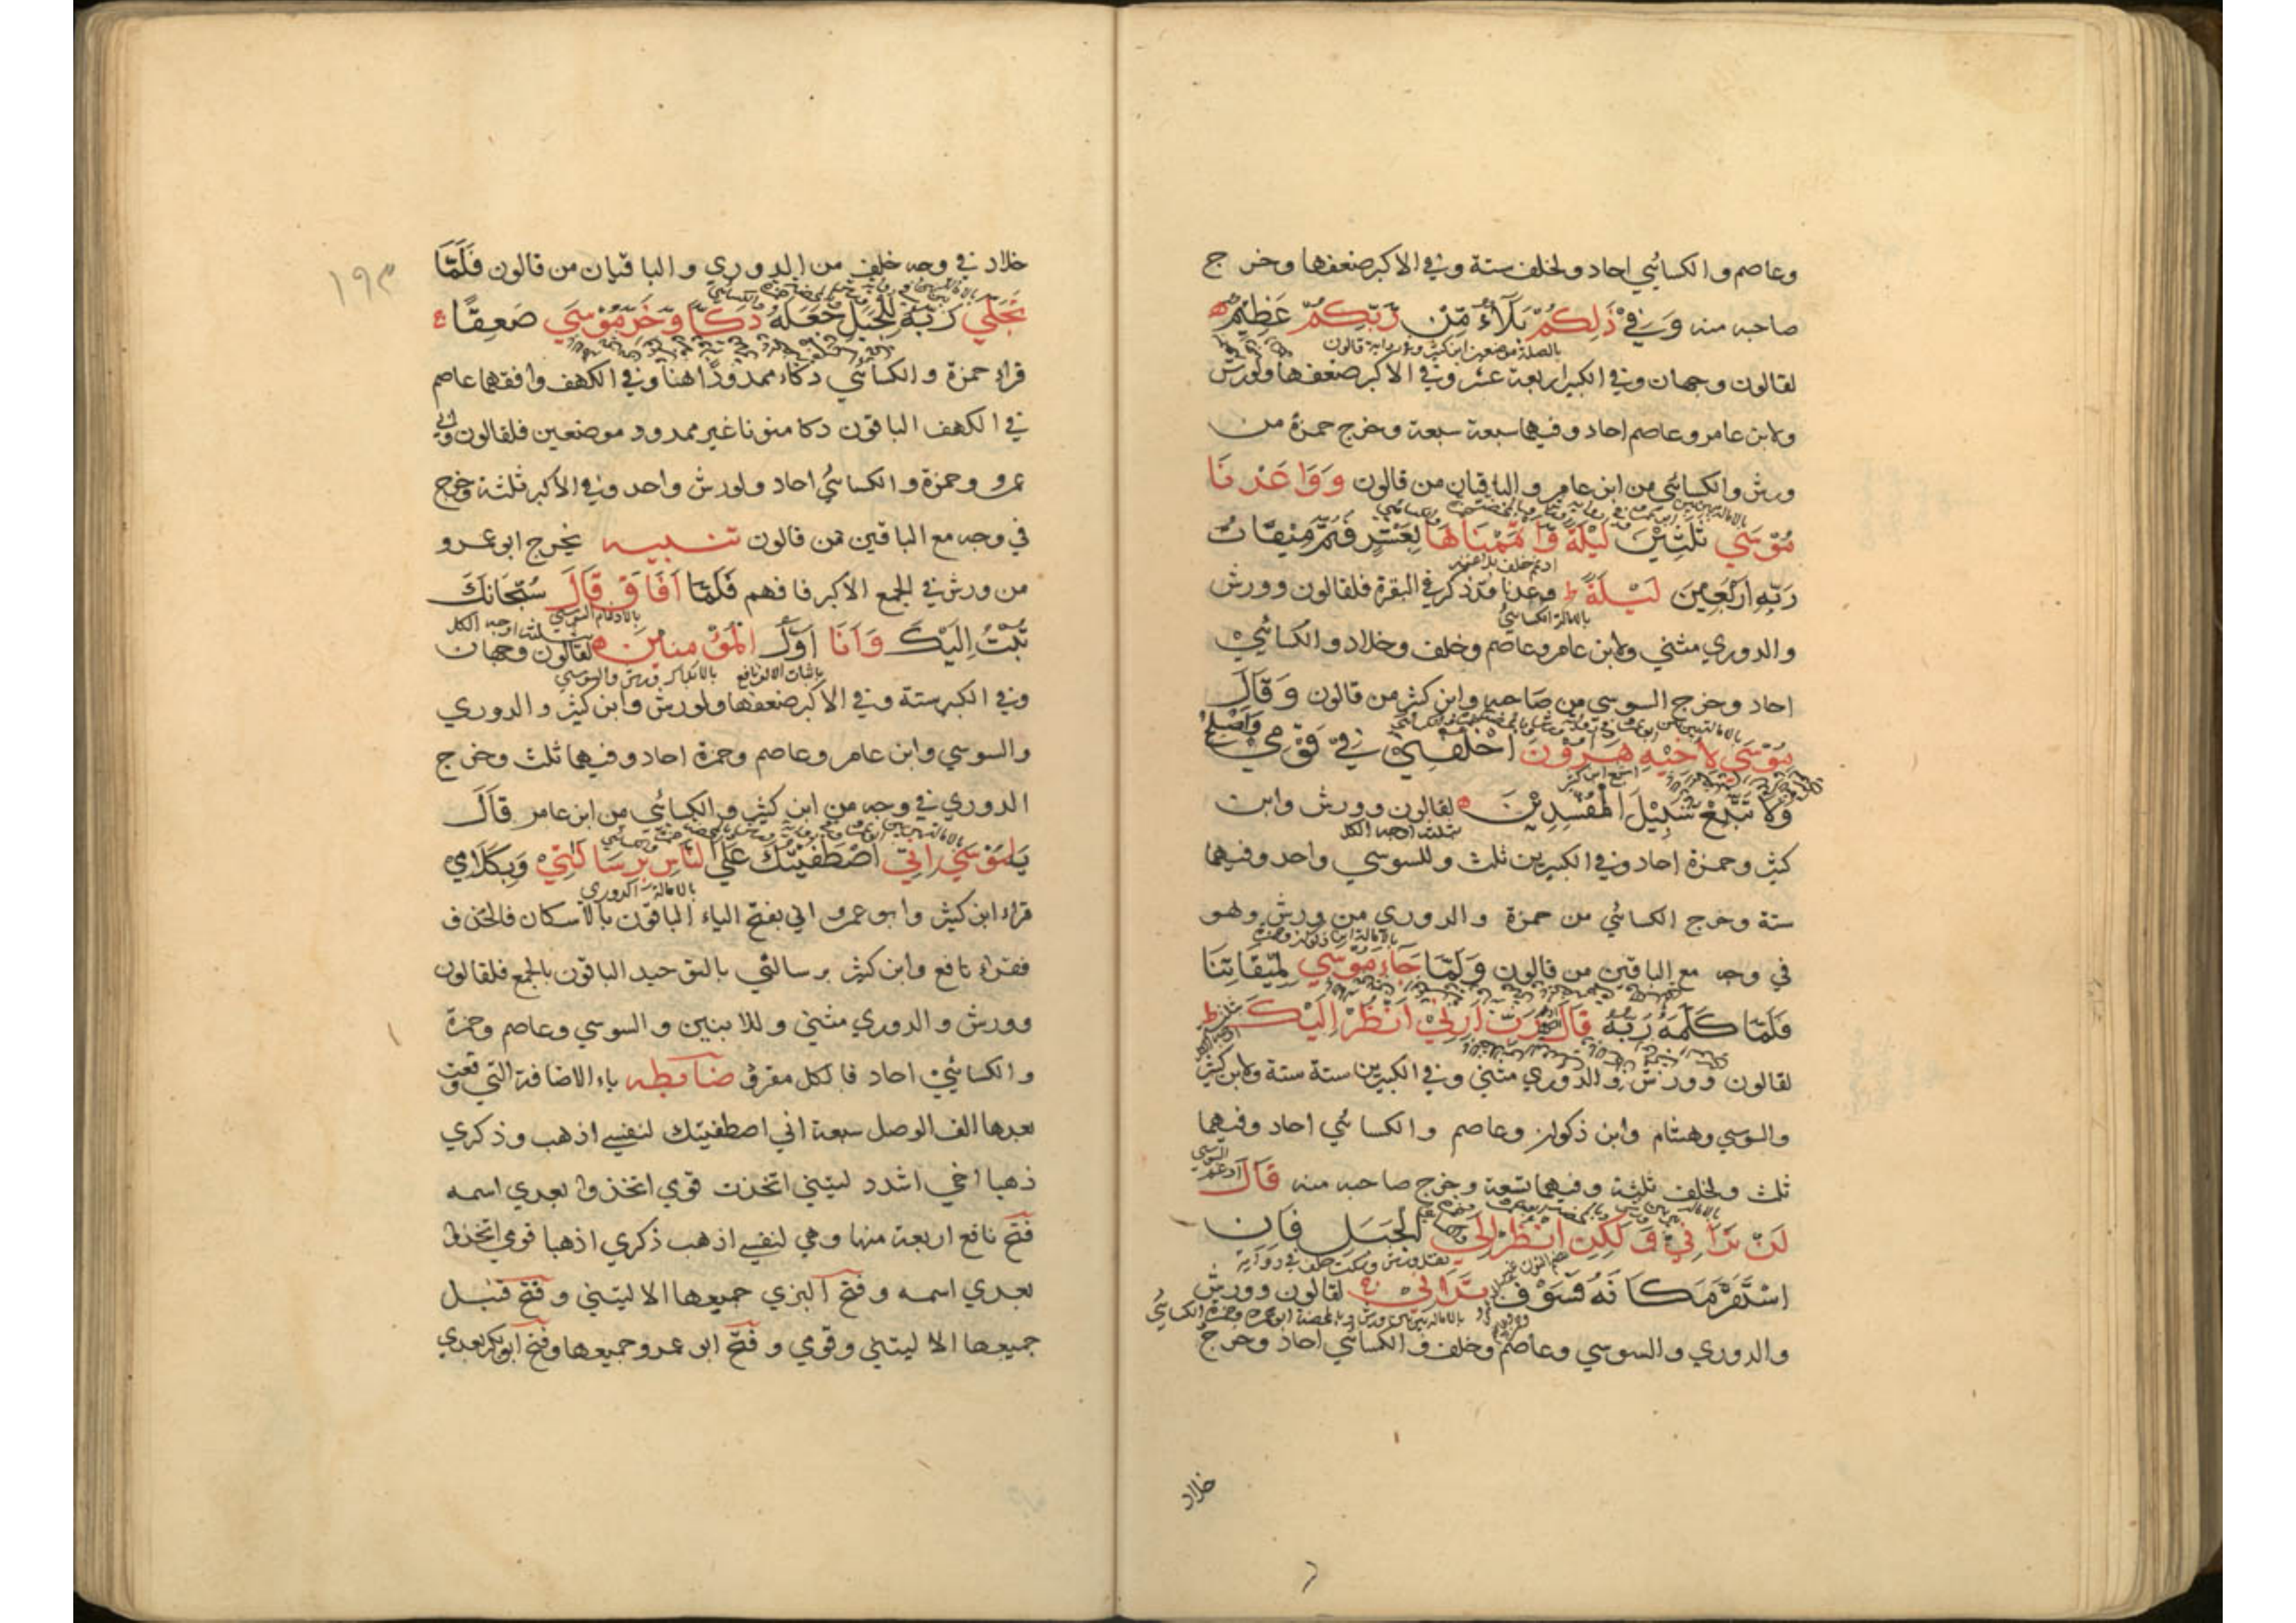 وعاصم والكسائي احاد ولخلف ستة وفي الاكبر ضعفها وخرج
صاحبه منه وَفِي ذَلِكُمْ بَلَآءٌ مِّنْ رَّبِّكُمْ عَظِيْمٌ
بالصلة موضعين ابن كثير وفي رواية قالون
لقالون وجهان وفي الكبير اربعة عشر وفي الاكبر ضعفها ولورش
ولابن عامر وعاصم احاد وفيهما سبعة سبعة وخرج حمزة من
ورش والكسائي من ابن عامر والباقيان من قالون وَوَاعَدْنَا
مُوْسَي ثَلٰثِيْنَ لَيْلَةً وَّاَتْمَمْنَاهَا بِعَشْرٍ فَتَمَّ مِيْقَاتُ
ادغم خلف بلا غنة
رَبِّهِ اَرْبَعِيْنَ لَيْلَةً وعدنا قد ذكر في البقرة فلقالون وورش
بالامالة الكسائي
والدوري مثني ولابن عامر وعاصم وخلف وخلاد والكسائي
احاد وخرج السوسي من صاحبه وابن كثير من قالون وَقَالَ
مُوْسَي لِاَخِيْهِ هٰرُوْنَ اخْلُفْنِيْ فِيْ قَوْمِيْ وَاَصْلِحْ
وَلَا تَتَّبِعْ سَبِيْلَ الْمُفْسِدِيْنَ لقالون وورش وابن
بثلث اوجه الكل
كثير وحمزة احاد وفي الكبيرين ثلث وللسوسي واحد وفيهما
ستة وخرج الكسائي من حمزة والدوري من ورش وهو
بالامالة ابن ذكوان وحمزة
في وجه مع الباقين من قالون وَلَمَّا جَآءَ مُوْسَي لِمِيْقَاتِنَا
فَلَمَّا كَلَّمَهُ رَبُّهُ قَالَ رَبِّ اَرِنِيْ اَنْظُرْ اِلَيْكَ
لقالون وورش والدوري مثني وفي الكبيرين ستة ستة ولابن كثير
والسوسي وهشام وابن ذكوان وعاصم والكسائي احاد وفيهما
ثلث ولخلف ثلثة وفيهما تسعة وخرج صاحبه منه قَالَ
لَنْ تَرَانِيْ وَلَكِنِ انْظُرْ اِلَي الْجَبَلِ فَاِنِ
اسْتَقَرَّ مَكَانَهُ فَسَوْفَ تَرَانِيْ لقالون وورش
والدوري والسوسي وعاصم وخلف والكسائي احاد وخرج
خلاد
١٩٣
خلاد في وجه خلف من الدوري والباقيان من قالون فَلَمَّا
تَجَلّٰي رَبُّهُ لِلْجَبَلِ جَعَلَهُ دَكًّا وَّخَرَّ مُوْسَي صَعِقًا
قراء حمزة والكسائي دكاء ممدودا هنا وفي الكهف وافقهما عاصم
في الكهف الباقون دكا منونا غير ممدود موضعين فلقالون وابي
عمرو وحمزة والكسائي احاد ولورش واحد وفي الاكبر ثلثة وخرج
في وجه مع الباقين من قالون تنبيه يخرج ابو عمرو
من ورش في الجمع الاكبر فافهم فَلَمَّا اَفَاقَ قَالَ سُبْحَانَكَ
بالادغام السوسي
تُبْتُ اِلَيْكَ وَاَنَا اَوَّلُ الْمُؤْمِنِيْنَ لقالون وجهان
باثبات الالف نافع بالابدال ورش والسوسي
وفي الكبير ستة وفي الاكبر ضعفها ولورش وابن كثير والدوري
والسوسي وابن عامر وعاصم وحمزة احاد وفيهما ثلث وخرج
الدوري في وجه من ابن كثير والكسائي من ابن عامر قَالَ
يٰمُوْسَي اِنِّي اصْطَفَيْتُكَ عَلَي النَّاسِ بِرِسَالٰتِيْ وَبِكَلَامِيْ
بالامالة الدوري
قراء ابن كثير وابو عمرو اني بفتح الياء الباقون بالاسكان فالحذف
فقراء نافع وابن كثير برسالتي بالتوحيد الباقون بالجمع فلقالون
وورش والدوري مثني وللابنين والسوسي وعاصم وحمزة
والكسائي احاد فالكل مفرق ضابطه ياء الاضافة التي وقعت
بعدها الف الوصل سبعة اني اصطفيتك لنفسي اذهب وذكري
ذهبا اخي اشدد ليتني اتخذت قومي اتخذوا بعدي اسمه
فتح نافع اربعة منها وهي لنفسي اذهب ذكري اذهبا قومي اتخذوا
بعدي اسمه وفتح البزي جميعها الا ليتني وفتح قنبل
جميعها الا ليتني وقومي وفتح ابو عمرو جميعها وفتح ابو بكر بعدي